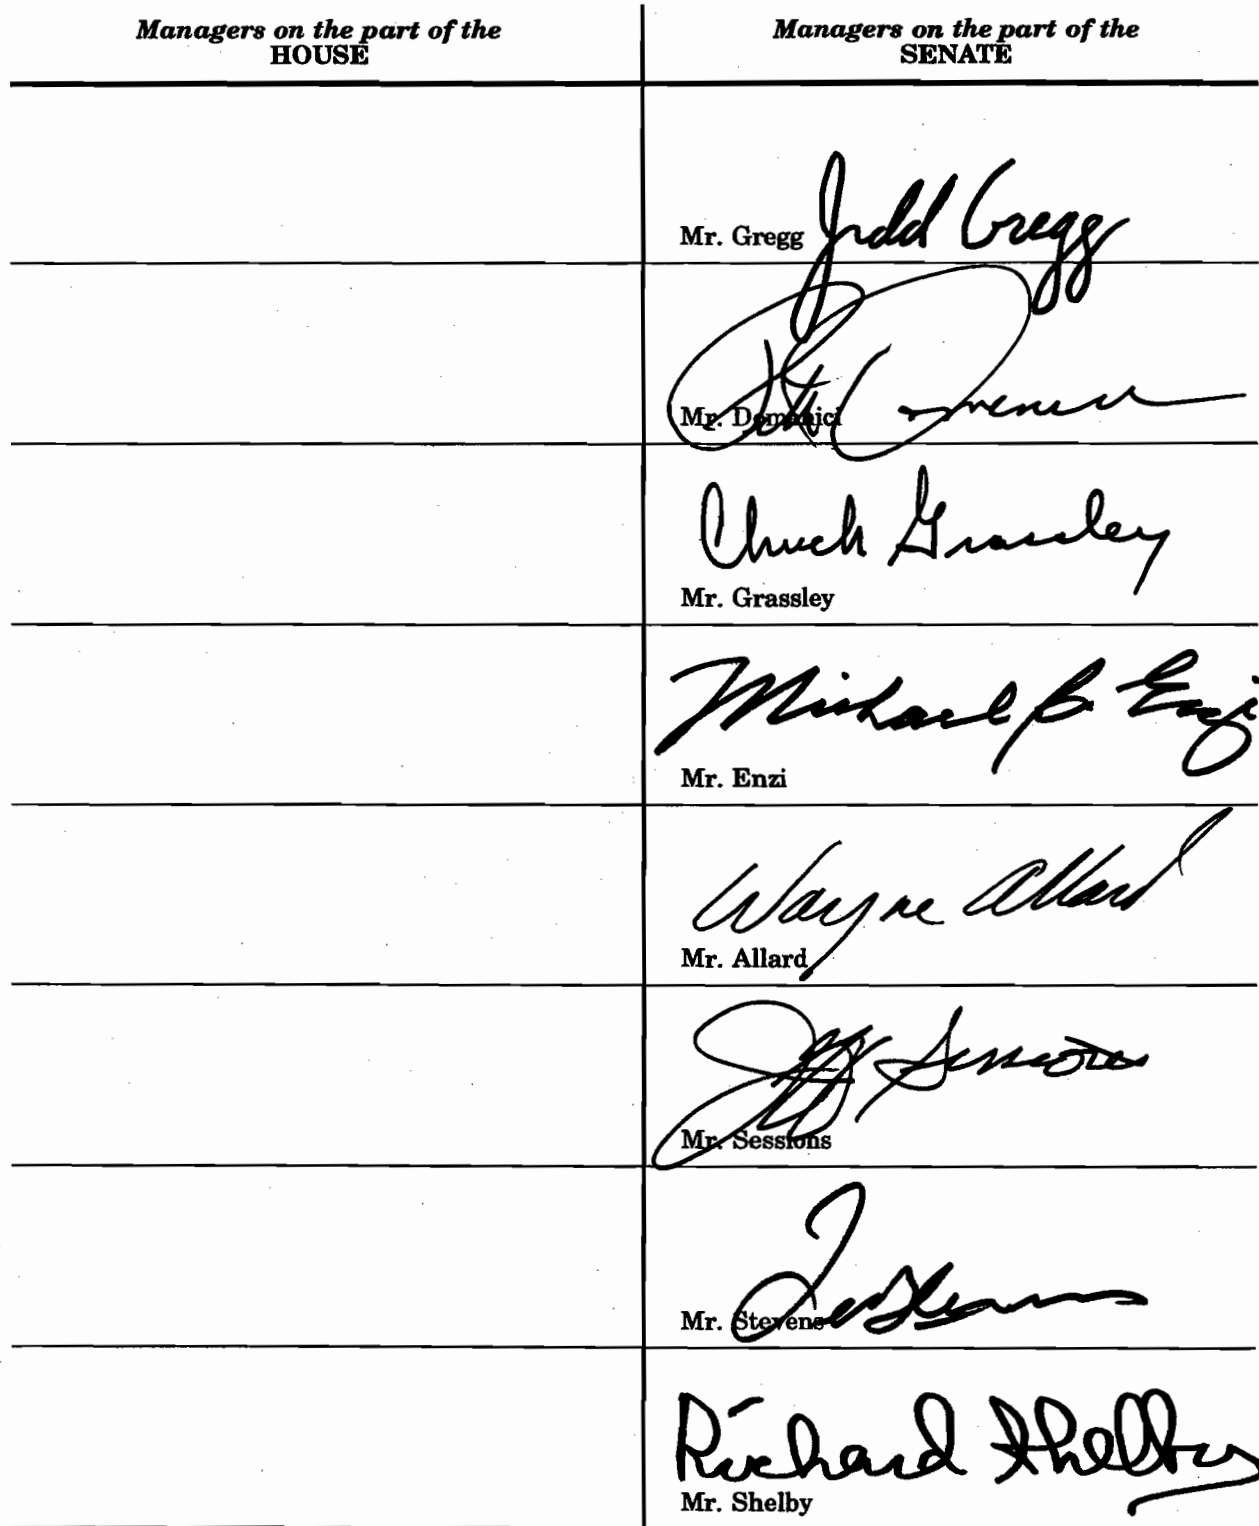 Managers on the part of the
HOUSE
Managers on the part of the
SENATE
Mr. Gregg Judd Gregg
Pete Domenici
Mr. Domenici
Chuck Grassley
Mr. Grassley
Michael B. Enzi
Mr. Enzi
Wayne Allard
Mr. Allard
Jeff Sessions
Mr. Sessions
Ted Stevens
Mr. Stevens
Richard Shelby
Mr. Shelby